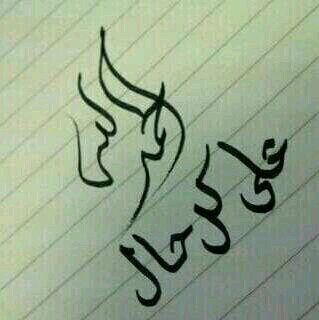 الحمد لله
على كل حال